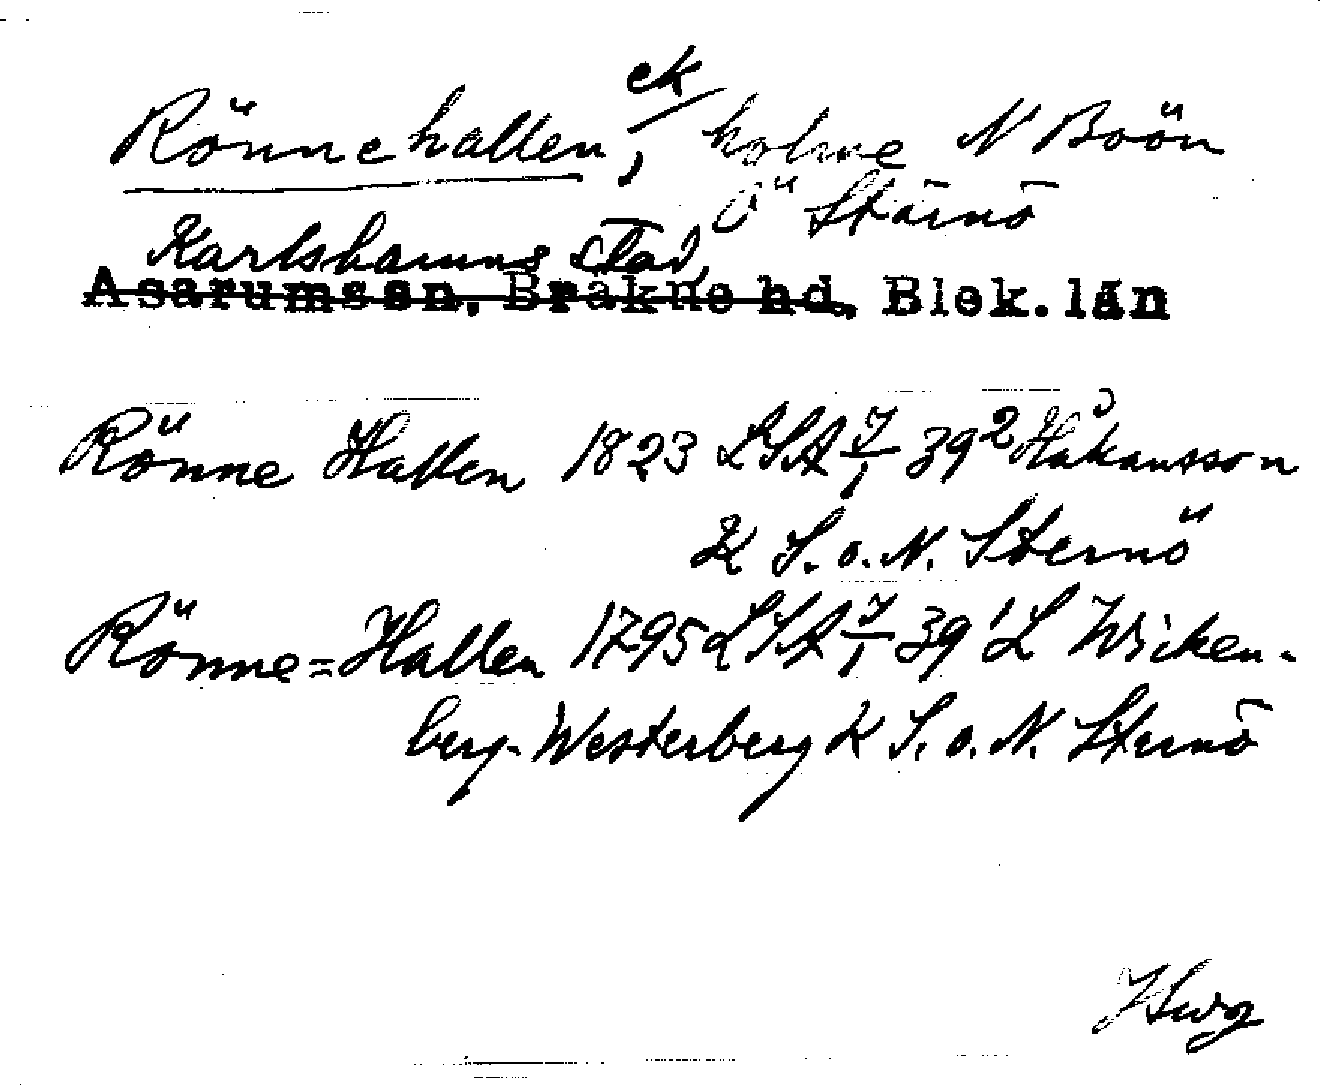 Rönnehallen, ek/ holme N Boön
Ö Stärnö
Karlshamns stad,
Asarums sn, Bräkne hd. Blek. län
Rönne Hallen 1823 LSA J/1 39² Håkansson
K S. o. N. Sternö
Rönne=Hallen 1795 LSA J/1 39¹ L Wicken-
berg-Westerberg K S. o. N. Sternö